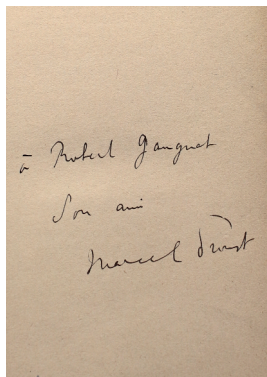 à Robert Gangnat
Son ami
Marcel Proust